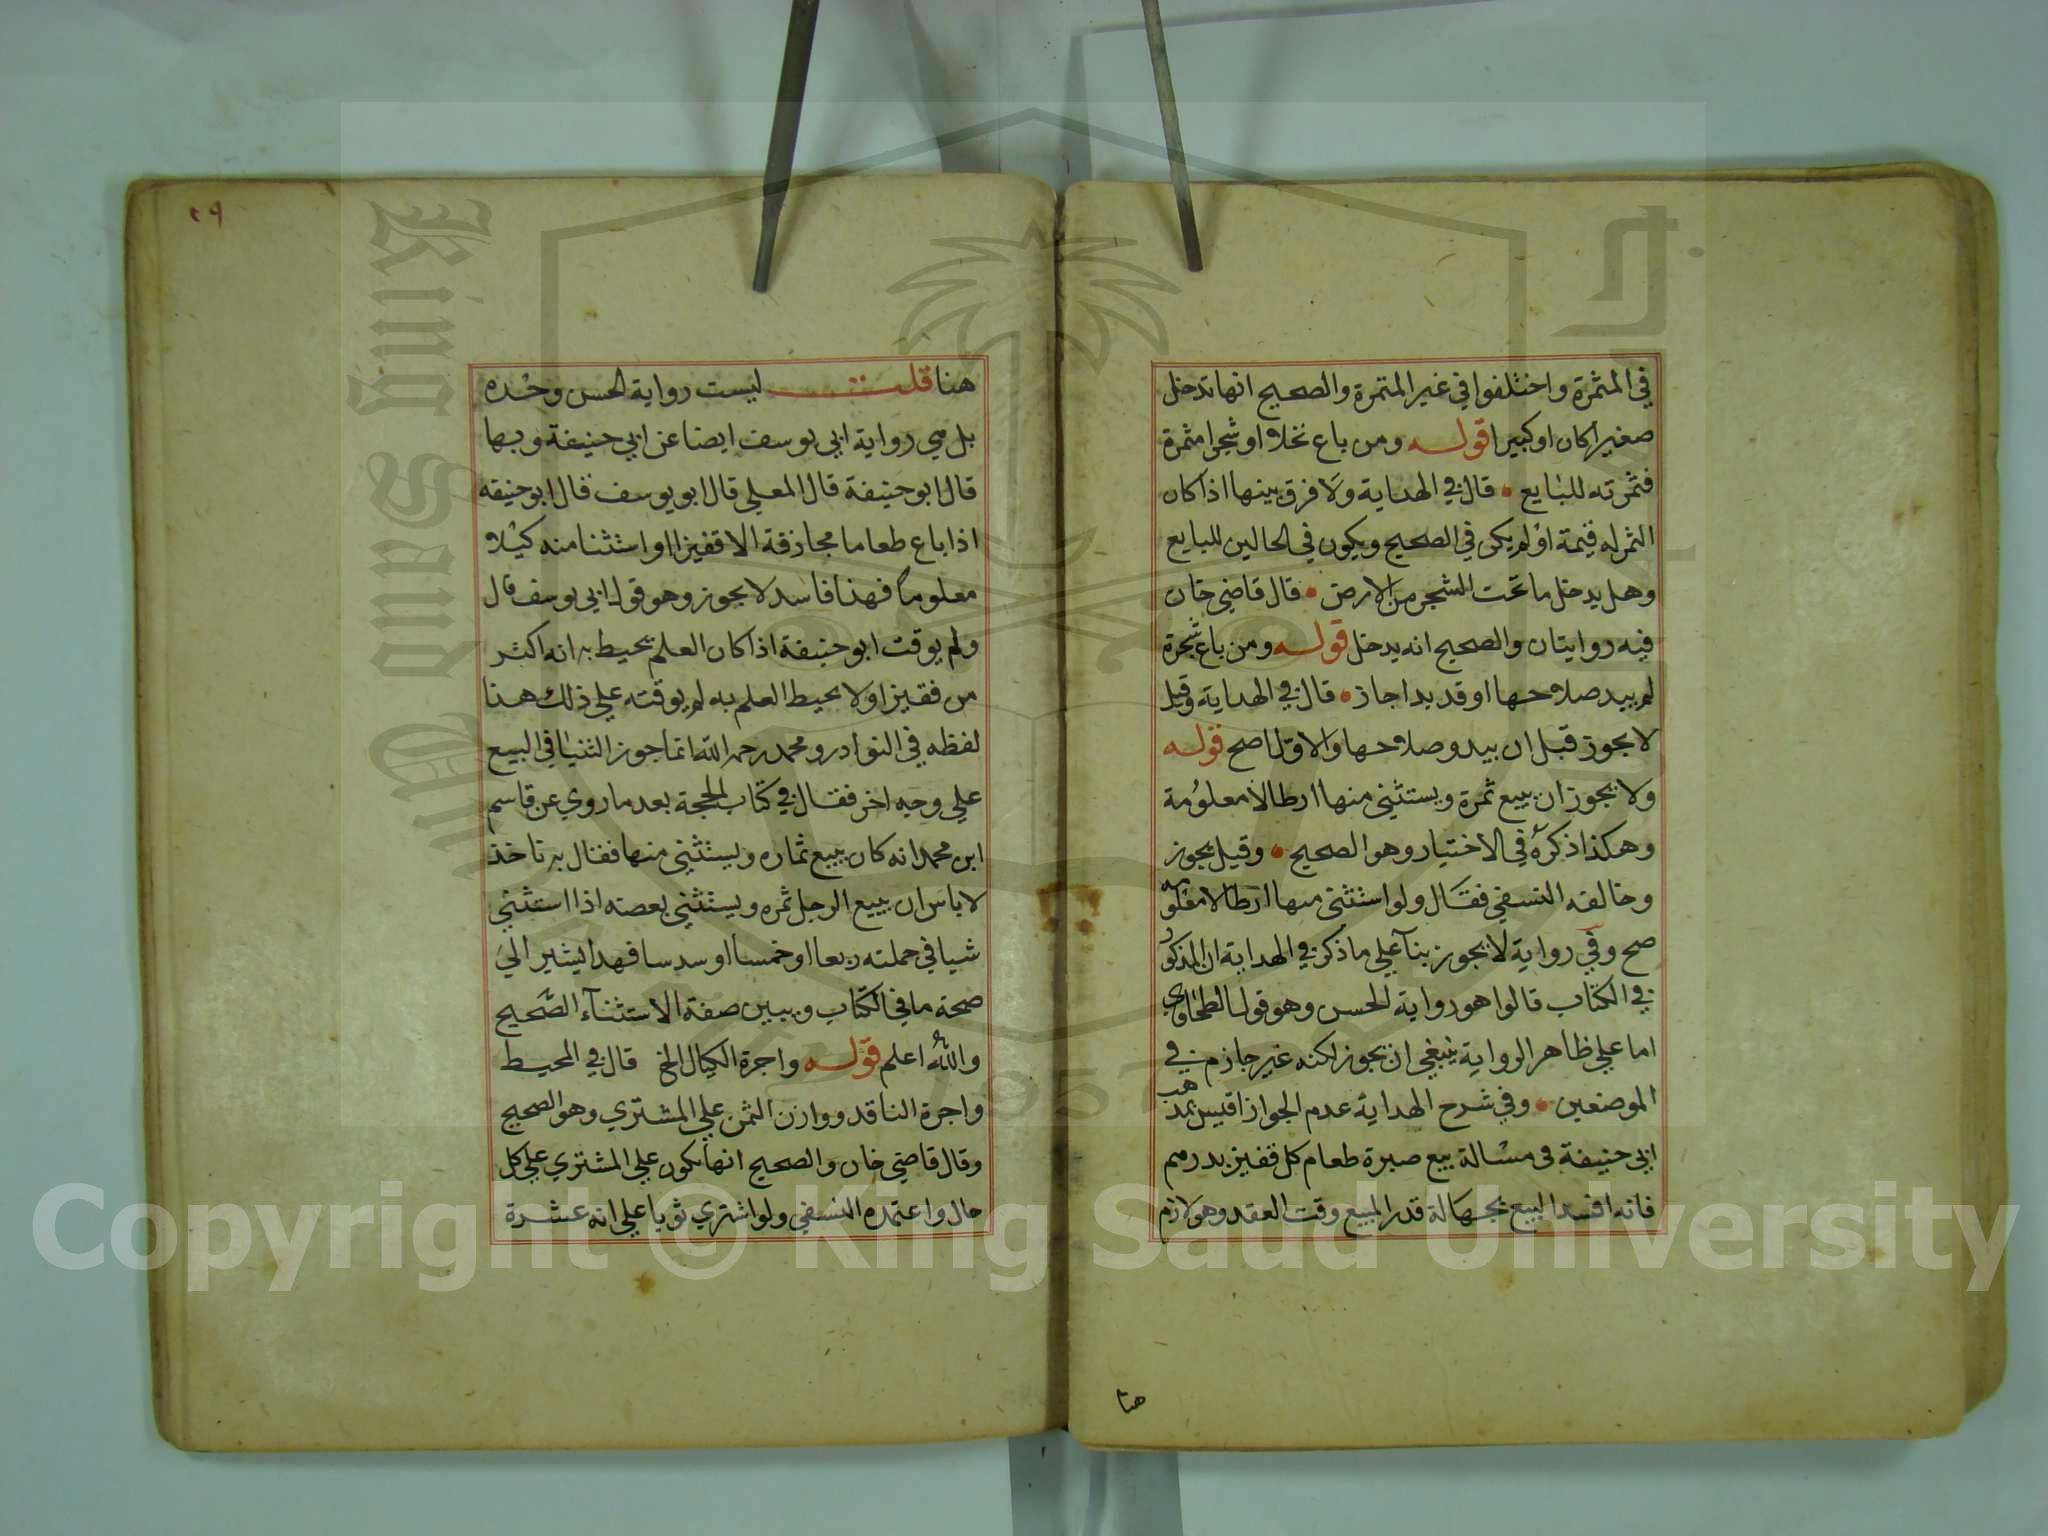 في المثمرة واختلفوا في غير المثمرة والصحيح انها تدخل
صغيرا كان او كبيرا قوله ومن باع نخلا او شجرا مثمرة
فثمرته للبايع قال في الهداية ولا فرق بينها اذا كان
الثمر له قيمة او لم يكن في الصحيح ويكون في الحالين للبايع
وهل يدخل ما تحت الشجر من الارض قال قاضي خان
فيه روايتان والصحيح انه يدخل قوله ومن باع شجرة
لم يبد صلاحها او قد بدا جاز قال في الهداية وقيل
لا يجوز قبل ان يبدو صلاحها والاول اصح قوله
ولا يجوز ان يبيع ثمرة ويستثني منها ارطالا معلومة
وهكذا ذكره في الاختيار وهو الصحيح وقيل يجوز
وخالفه النسفي فقال ولو استثنى منها ارطالا معلومه
صح وفي رواية لا يجوز بنآ علي ما ذكر في الهداية ان المذكور
في الكتاب قالوا هو رواية الحسن وهو قول الطحاوي
اما علي ظاهر الرواية ينبغي ان يجوز لكنه غير جازم في
الموضعين وفي شرح الهداية عدم الجواز اقيس بمذهب
ابي حنيفة في مسالة بيع صبرة طعام كل قفيز بدرهم
فانه افسد البيع بجهالة قدر المبيع وقت العقد وهو لازم
هنا
٢٩
هنا قلت ليست رواية الحسن وحده
بل هي رواية ابي يوسف ايضا عن ابي حنيفة وبها
قال ابو حنيفة قال المعلي قال ابو يوسف قال ابو حنيفه
اذا باع طعاما مجازفة الا قفيزا او استثنا منه كيلا
معلوما فهذا فاسد لا يجوز وهو قول ابي يوسف قال
ولم يوقت ابو حنيفة اذا كان العلم يحيط به انه اكثر
من قفيز او لا يحيط العلم به لم يوقته علي ذلك هذا
لفظه في النوادر ومحمد رحمه الله انما جوز الثنيا في البيع
علي وجه اخر فقال في كتاب الحجة بعد ما روي عن قاسم
ابن محمد انه كان يبيع ثماره ويستثني منها فقال به ناخذ
لا باس ان يبيع الرجل ثمره ويستثني بعضه اذا استثني
شيا في جملته ربعا او خمسا او سدسا فهذا يشير الي
صحة ما في الكتاب ويبين صفة الاستثنآء الصحيح
والله اعلم قوله واجرة الكيال الخ قال في المحيط
واجرة الناقد ووازن الثمن علي المشتري وهو الصحيح
وقال قاضي خان والصحيح انها تكون علي المشتري علي كل
حال واعتمده النسفي ولو اشتري ثوبا علي انه عشرة
King Saud University
Copyright © King Saud University